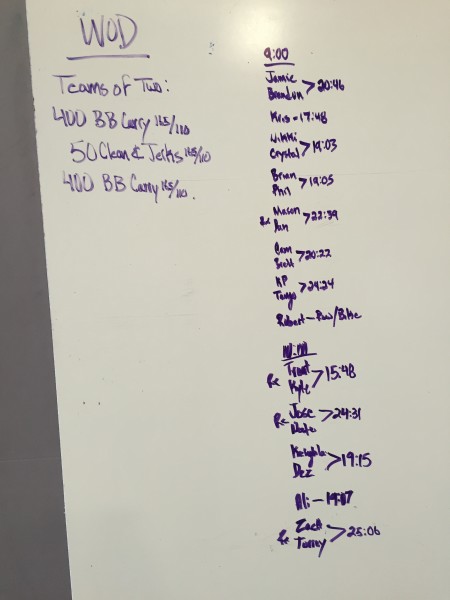 WOD
Teams of Two:
400 BB Carry 165/110
50 Clean & Jerks 165/110
400 BB Carry 165/110.
9:00
Jamie
Brandun > 20:46
Kris - 17:48
Nikki
Crystal > 19:03
Brian
Phil > 19:05
Rx Mason
Dan > 22:39
Cam
Scott > 20:22
KP
Tango > 24:24
Robert - Row/Bike
10:00
Rx Trent
Kyle > 15:48
Rx Jose
Nate > 24:31
Dez > 19:15
Ali - 19:17
Rx Zach
Tommy > 25:06